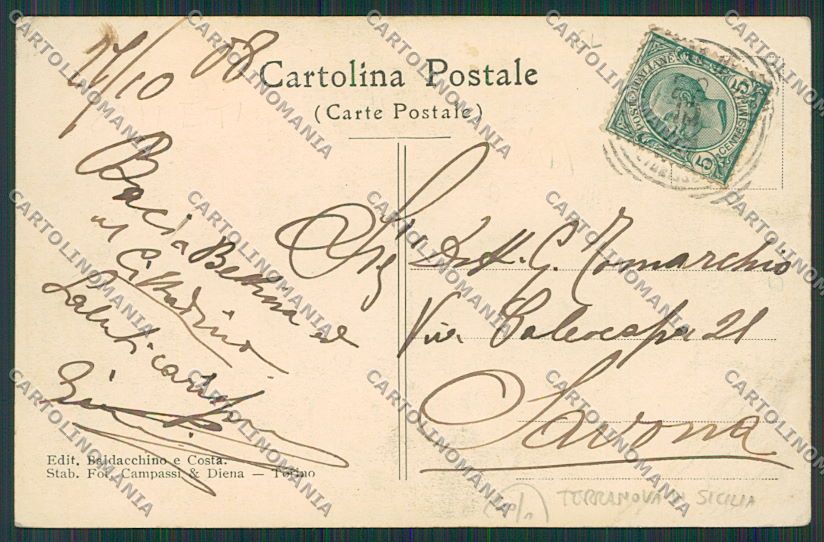 17/10 08
Cartolina Postale
(Carte Postale)
POSTE ITALIANE
CENTESIMI
5
5
Baci a Bettina
al Cittadino ed
Saluti
Sigr Dott. G. Tomarchio
Via Paleocapa 21
Savona
Edit. Baldacchino e Costa.
Stab. Fot. Campassi & Diena — Torino
TERRANOVA DI SICILIA
CARTOLINOMANIA